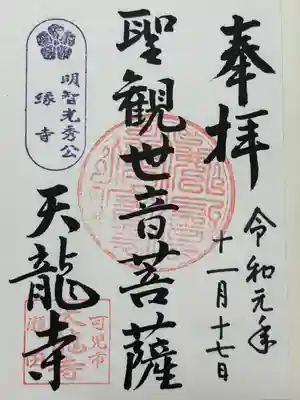 奉拝
令和元年
十一月十七日
聖観世音菩薩
明智光秀公
縁寺
天龍寺
可児市
瀬田
天龍寺